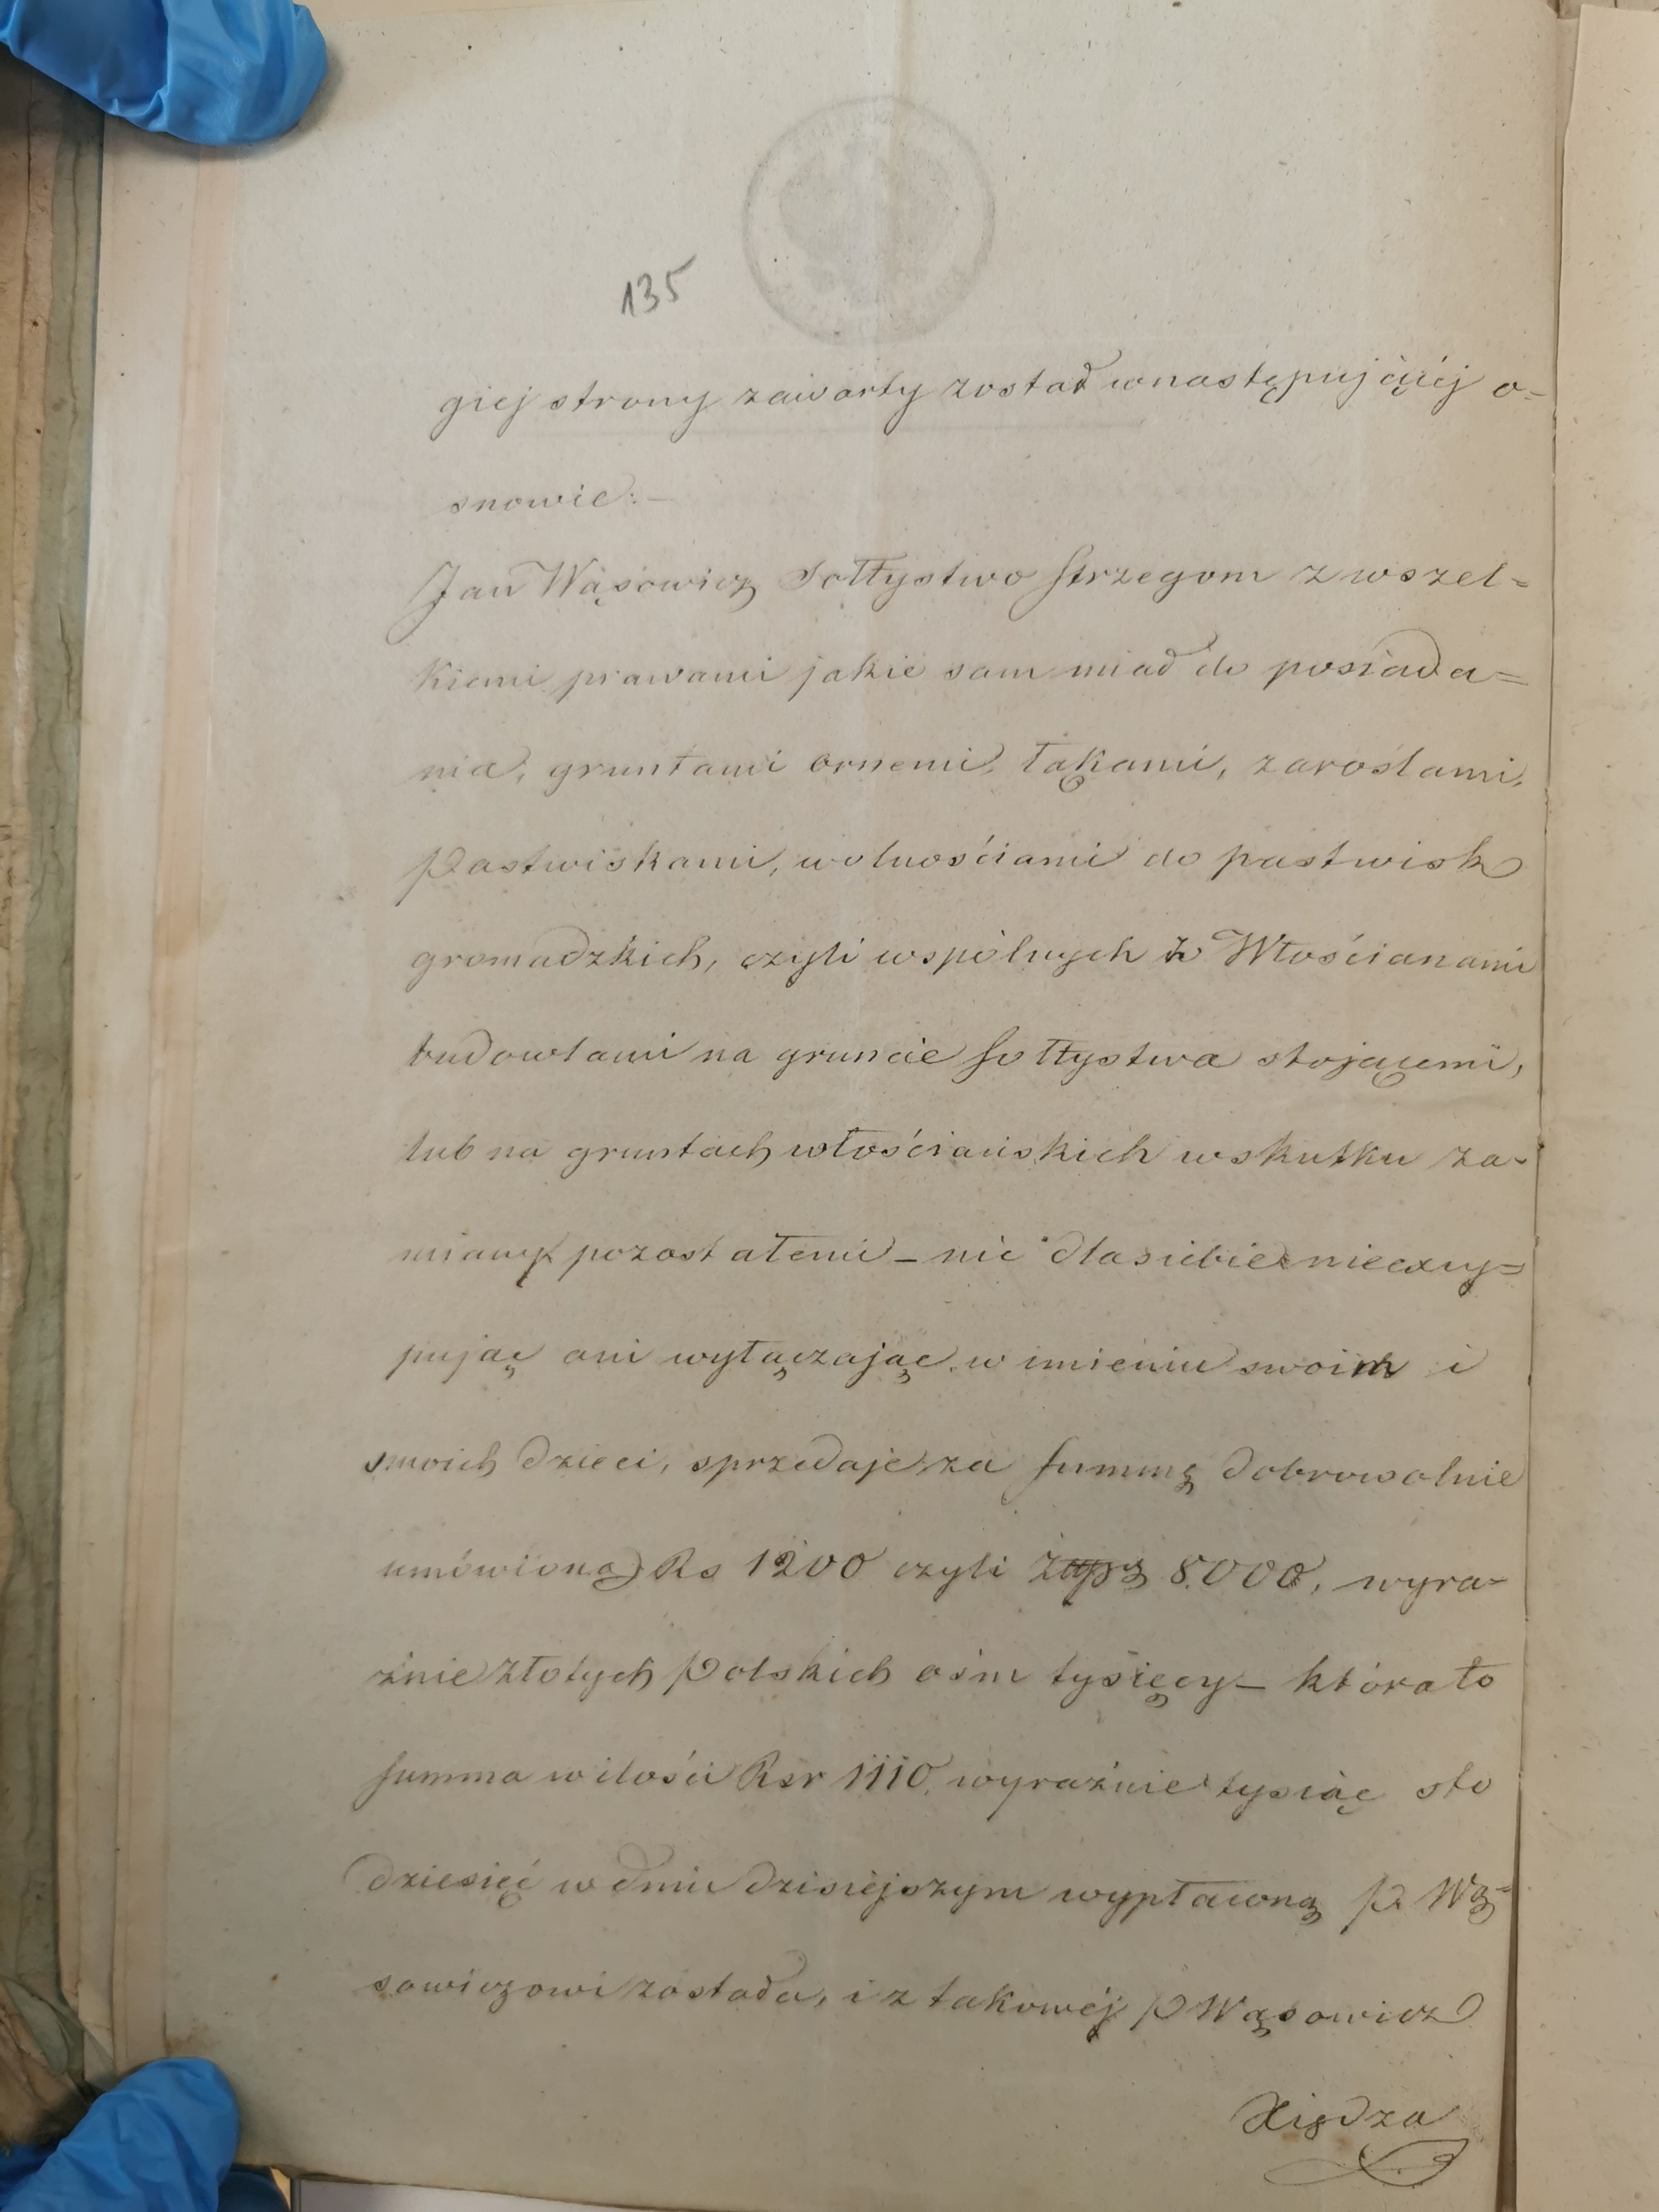 135
giej strony zawarty został wnastępującéj o=
snowie:—
Jan Wąsowicz Sołtystwo Strzegom z wszel=
kiemi prawami jakie sam miał do posiada=
nia, gruntami ornemi, łąkami, zaroślami,
Pastwiskami, wolnościami do pastwisk
gromadzkich, czyli wspólnych z Włościanami
budowlami na gruncie Sołtystwa stojącemi,
lub na gruntach włościańskich wskutku za-
miany pozostałemi – nic dla siebie nieexcy=
pując ani wyłączając w imieniu swoim i
swoich dzieci, sprzedaje za Summę dobrowolnie
umówioną Rs 1200 czyli 8.000, wyra-
źnie Złotych Polskich ośm tysięcy – która to
Summa w ilości Rsr 1110, wyraźnie tysiąc sto
dziesięć w dniu dzisiejszym wypłaconą P. Wą=
sowiczowi została, i z takowéj P Wąsowicz
Xiędza